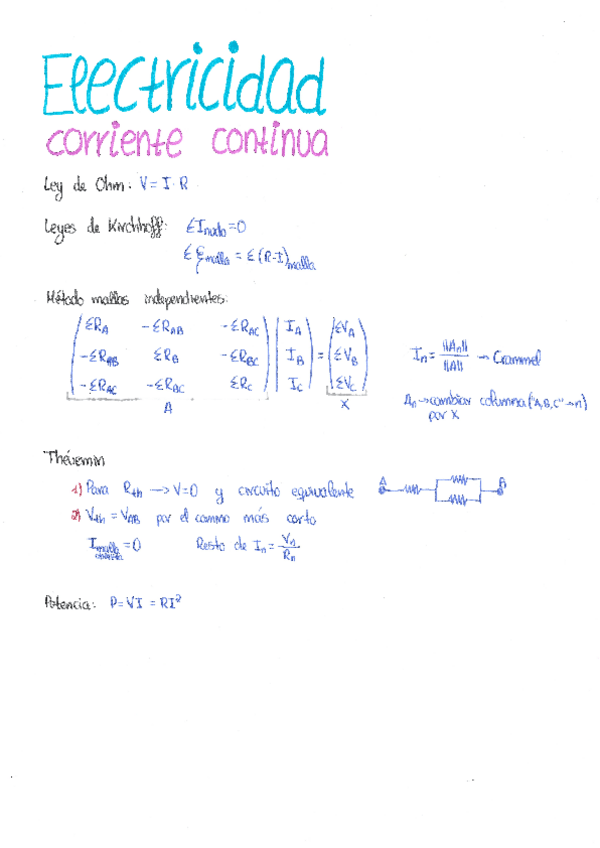 Electricidad
corriente continua
Ley de Ohm: V = I · R
Leyes de Kirchhoff: ΣI nudo = 0
Σ ξ malla = Σ (R·I) malla
Método mallas independientes:
ΣR_A -ΣR_AB -ΣR_AC I_A ΣV_A
-ΣR_AB ΣR_B -ΣR_BC I_B = ΣV_B I_n = ||A_n|| / ||A|| → Crammel
-ΣR_AC -ΣR_BC ΣR_C I_C ΣV_C
A X A_n → cambiar columna ("A,B,C" → n)
por X
Thévemin
1) Para R_th → V=0 y circuito equivalente A B
2) V_th = V_AB por el camino más corto
I malla abierta = 0 Resto de I_n = V_n / R_n
Potencia: P = VI = RI²